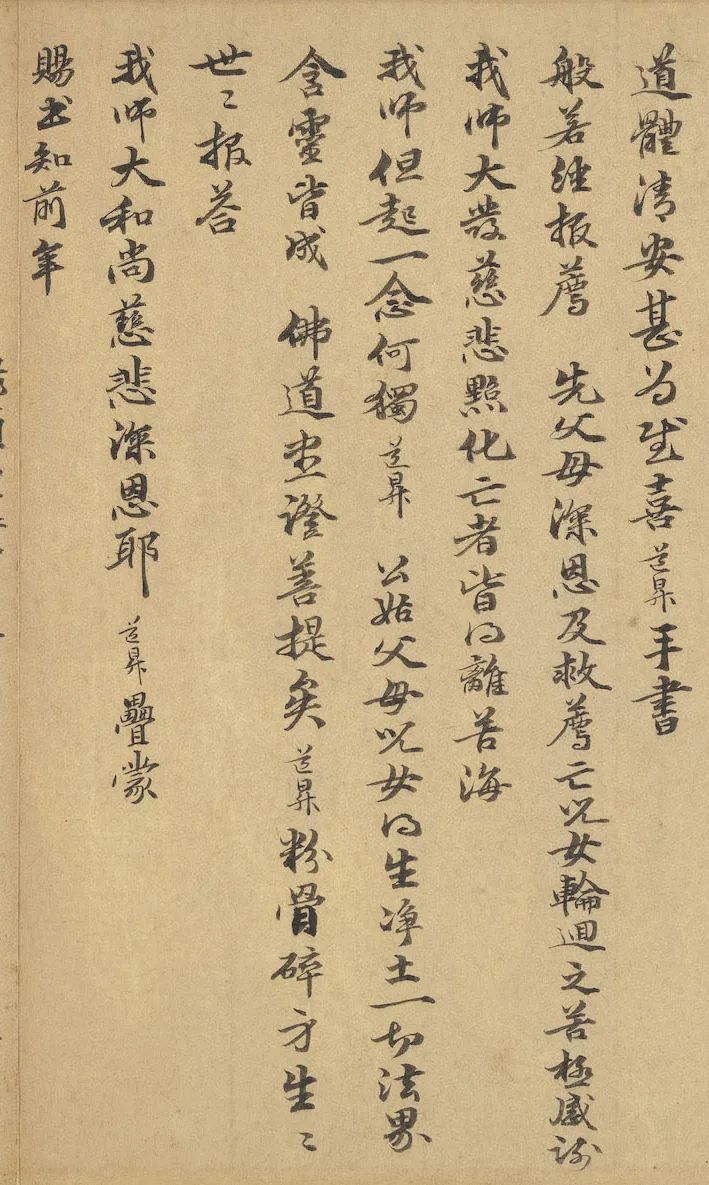 道體清安甚为喜道昇手書
般若经报薦 先父母深恩及救薦亡兒女輪迴之苦極感謝
我师大發慈悲點化亡者皆得離苦海
我师但起一念何獨道昇 公姑父母兒女得生净土一切法界
含靈皆成 佛道尽證善提矣道昇粉骨碎身生〻
世〻报答
我师大和尚慈悲深恩耶 道昇疊蒙
賜书知前年